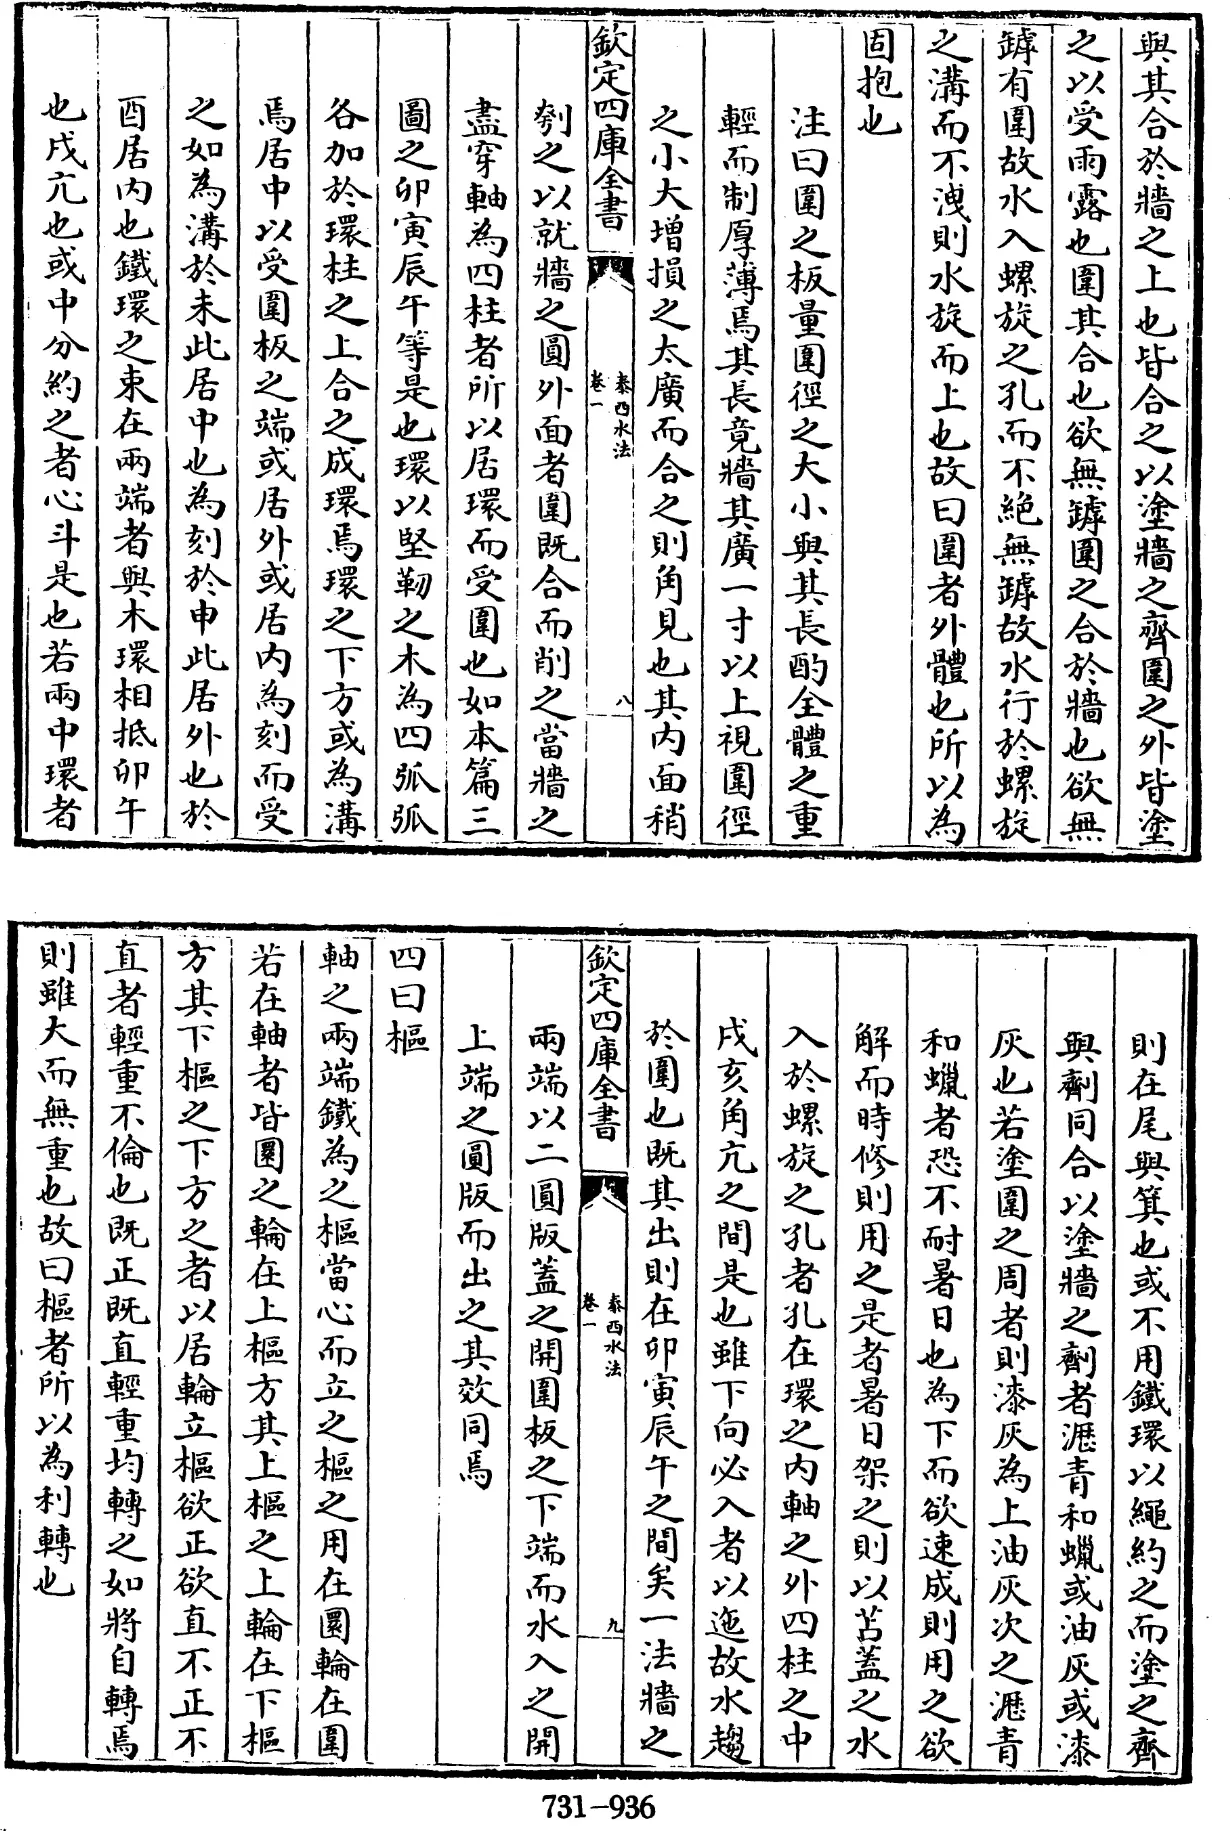 與其合於牆之上也皆合之以塗牆之齊圍之外皆塗
之以受雨露也圍其合也欲無罅圍之合於牆也欲無
罅有圍故水入螺旋之孔而不絶無罅故水行於螺旋
之溝而不洩則水旋而上也故曰圍者外體也所以為
固抱也
注曰圍之板量圍徑之大小與其長酌全體之重
輕而制厚薄焉其長竟牆其廣一寸以上視圍徑
之小大增損之太廣而合之則角見也其内面稍
欽定四庫全書
泰西水法
卷一
八
剜之以就牆之圓外面者圍既合而削之當牆之
盡穿軸為四柱者所以居環而受圍也如本篇三
圖之卯寅辰午等是也環以堅靭之木為四弧弧
各加於環柱之上合之成環焉環之下方或為溝
焉居中以受圍板之端或居外或居内為刻而受
之如為溝於未此居中也為刻於申此居外也於
酉居内也鐵環之束在兩端者與木環相抵卯午
也戌亢也或中分約之者心斗是也若兩中環者
則在尾與箕也或不用鐵環以繩約之而塗之齊
與劑同合以塗牆之劑者瀝青和蠟或油灰或漆
灰也若塗圍之周者則漆灰為上油灰次之瀝青
和蠟者恐不耐暑日也為下而欲速成則用之欲
解而時修則用之是者暑日架之則以苫蓋之水
入於螺旋之孔者孔在環之内軸之外四柱之中
戌亥角亢之間是也雖下向必入者以迤故水趨
於圍也既其出則在卯寅辰午之間矣一法牆之
欽定四庫全書
泰西水法
卷一
九
兩端以二圓版蓋之開圍板之下端而水入之開
上端之圓版而出之其效同焉
四曰樞
軸之兩端鐵為之樞當心而立之樞之用在圜輪在圍
若在軸者皆圜之輪在上樞方其上樞之上輪在下樞
方其下樞之下方之者以居輪立樞欲正欲直不正不
直者輕重不倫也既正既直輕重均轉之如將自轉焉
則雖大而無重也故曰樞者所以為利轉也
731-936